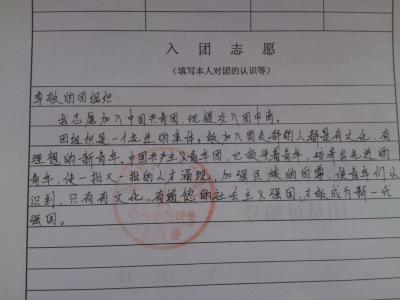 入团志愿
(填写本人对团的认识等)
尊敬的团组织:
我志愿加入中国共青团,现提交入团申出。
团组织是一个先进的集体,能加入团支部的人都是有文化、有
理想的新青年。中国共产主义青年团,它教导着青年,培养出先进的
青年、使一批又一批的人才涌现,加强民族的自尊、使青年们认
识到,只有有文化、有道德的社会主义强国,才能成为新一代
强国。